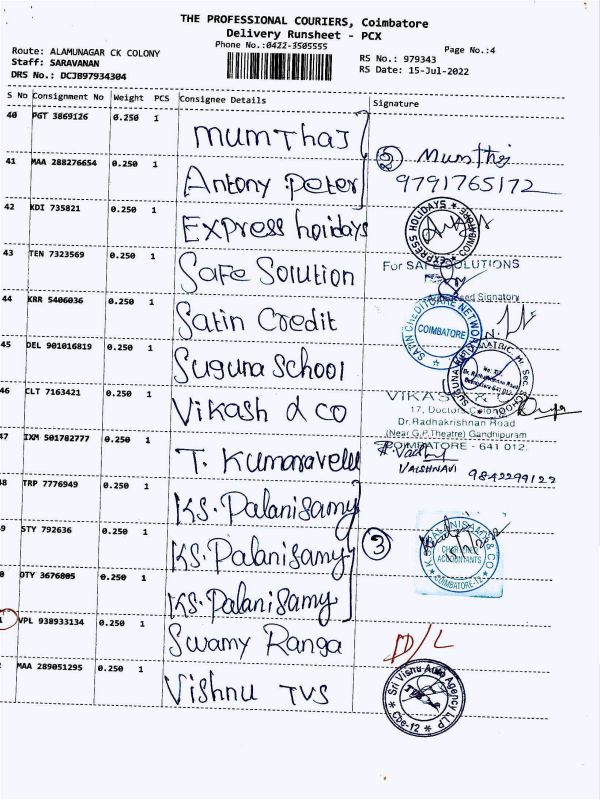 THE PROFESSIONAL COURIERS, Coimbatore
Delivery Runsheet - PCX
Phone No.:0422-3505555
Page No.:4
Route: ALAMUNAGAR CK COLONY
RS No.: 979343
Staff: SARAVANAN
RS Date: 15-Jul-2022
DRS No.: DCJB97934304
S No Consignment No Weight PCS Consignee Details Signature
40 PGT 3869126 0.250 1 Mumthaj
41 MAA 288276654 0.250 1 Antony Peter
2 Mumthj
9791765172
42 KDI 735821 0.250 1 Express holidays
EXPRESS HOLIDAYS
43 TEN 7323569 0.250 1 Safe Solution
For SAFE SOLUTIONS
Authorised Signatory
44 KRR 5406036 1 0.250 Satin Credit
SATIN CREDITCARE NETWORK
COIMBATORE
45 DEL 901016819 0.250 1 Suguna School
46 CLT 7163421 0.250 1 Vikash & co
17, Doctors Colony
Dr.Radhakrishnan Road
(Near G.P.Theatre) Gandhipuram
COIMBATORE - 641 012.
47 IXM 501782777 0.250 1 T. Kumaravelu
VAISHNAVI 9842299122
48 TRP 7776949 0.250 1 KS. Palanisamy
9 STY 792636 0.250 1 KS. Palanisamy
3
K.S.PALANISAMY & CO
CHARTERED
ACCOUNTANTS
COIMBATORE-12
0 OTY 3676805 0.250 1 KS. Palanisamy
1 VPL 938933134 0.250 1 Swamy Ranga
D/L
2 MAA 289051295 0.250 1 Vishnu TVS
Sri Visnu Auto Agency LLP
Cbe-12